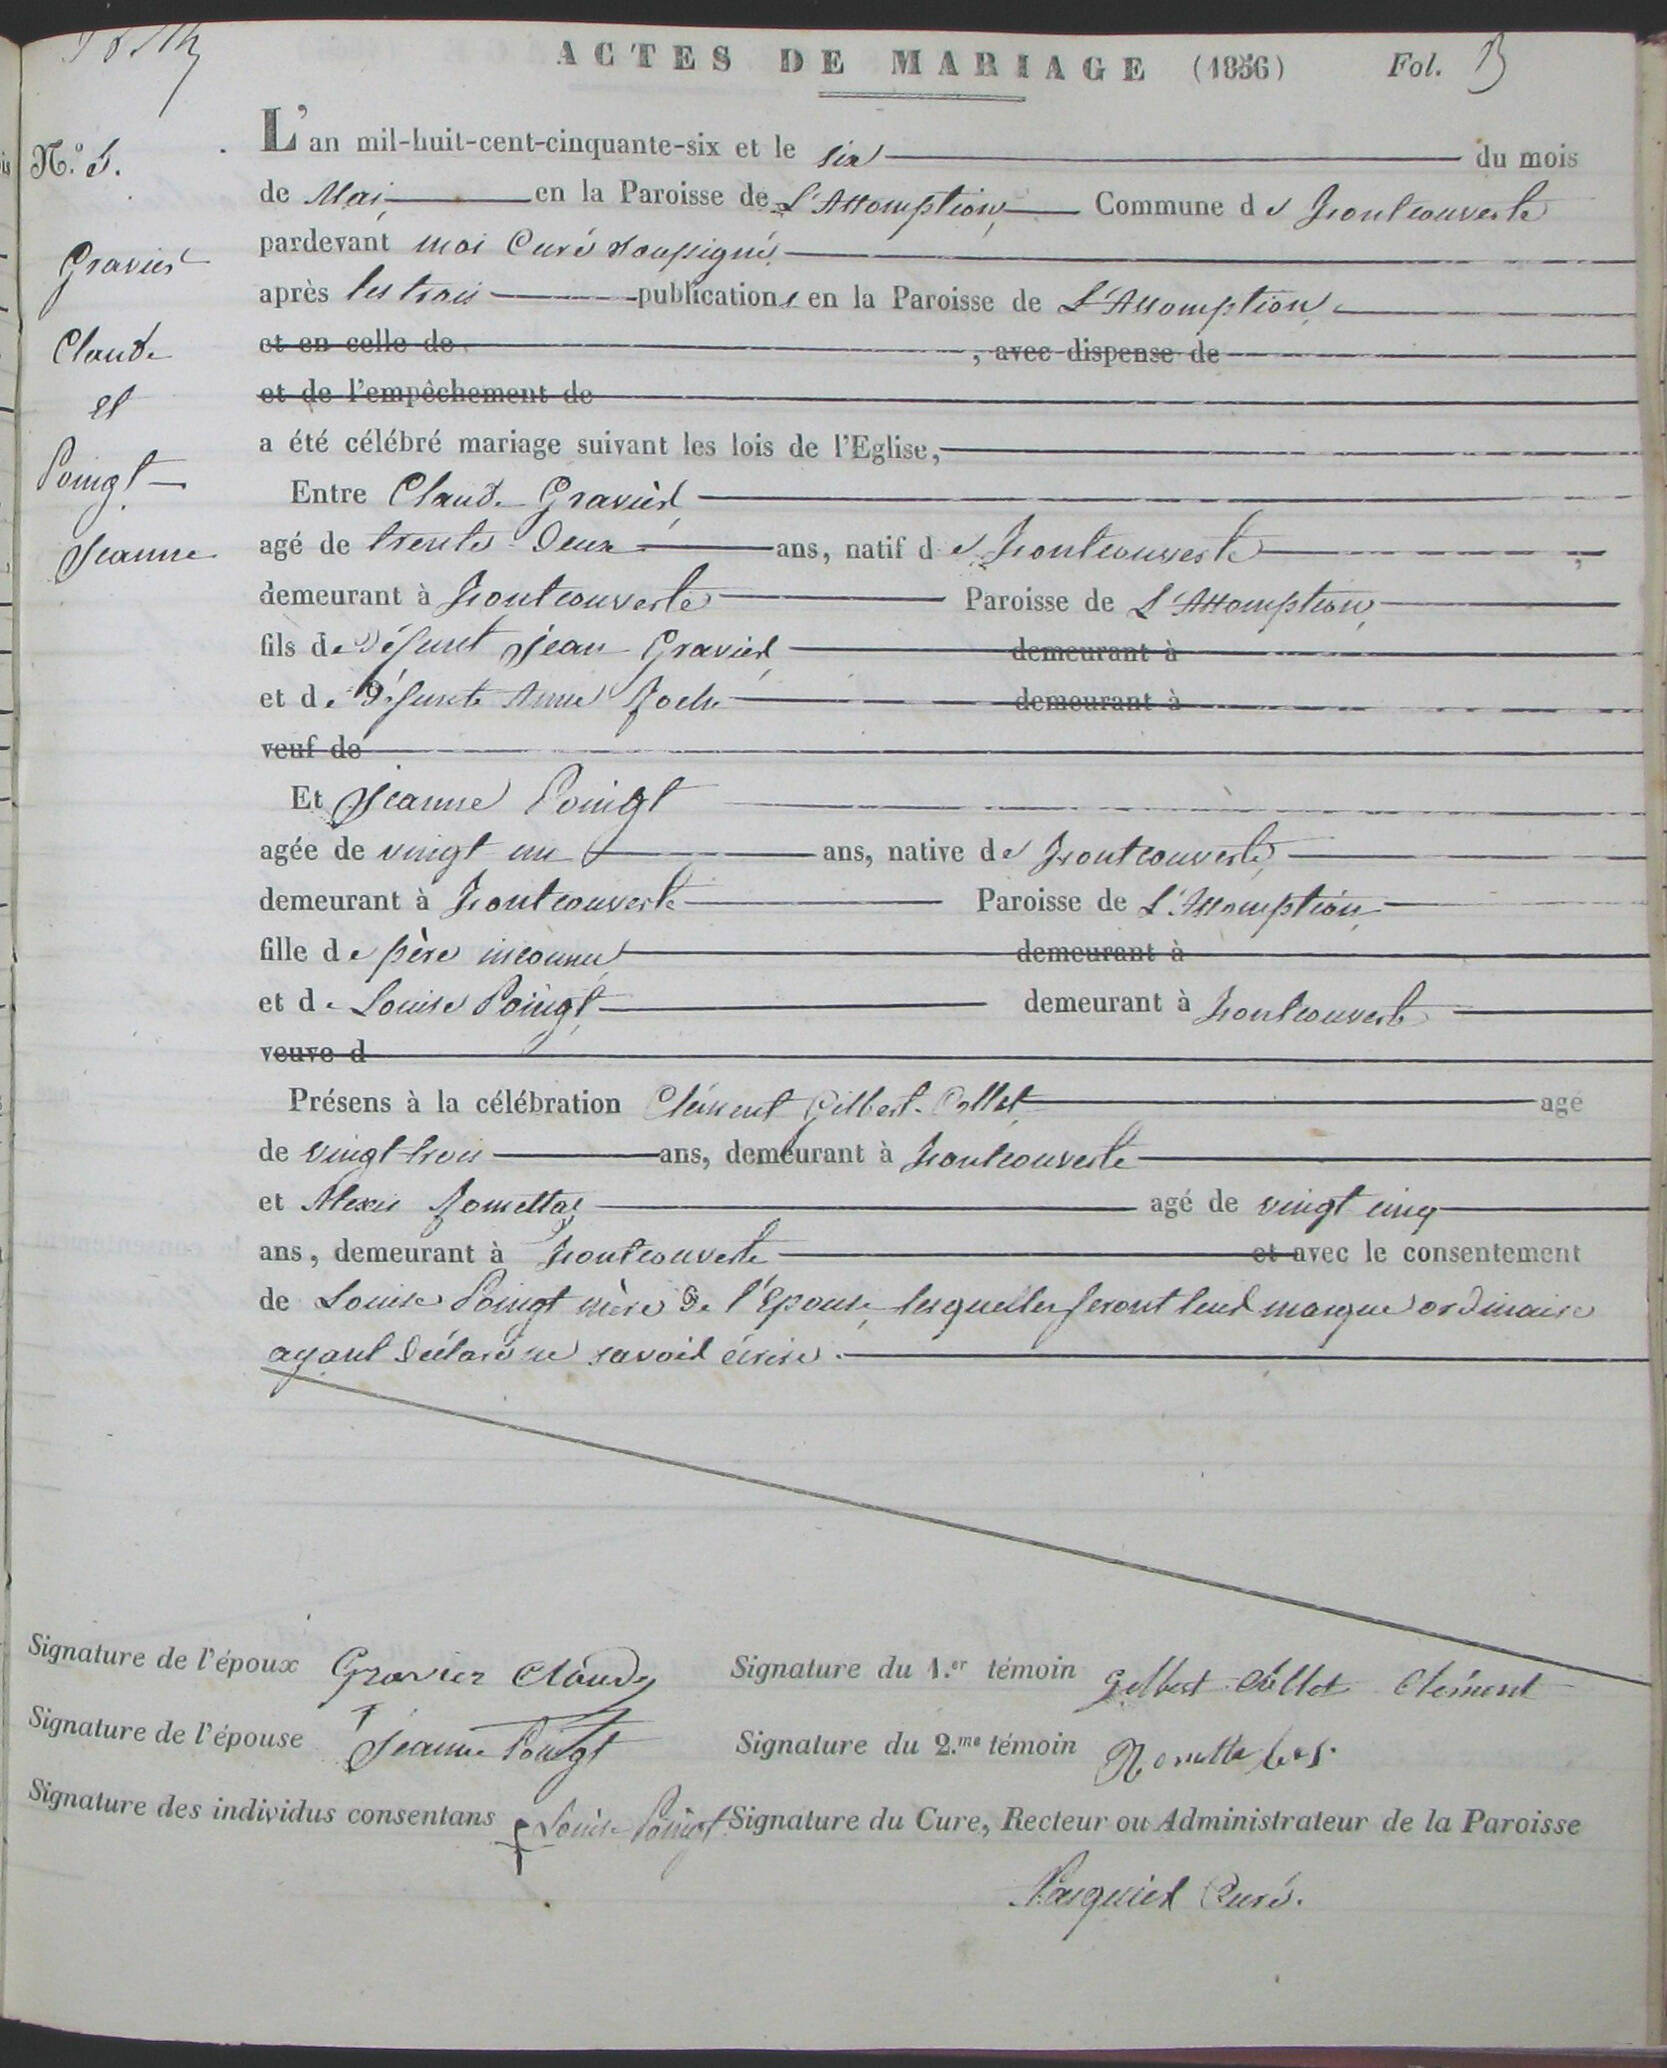 ACTES DE MARIAGE (1856) Fol.
N.º 5.
Gravier
Claude
et
Poingt
Jeanne
L'an mil-huit-cent-cinquante-six et le six du mois
de Mai en la Paroisse de L'Assomption, Commune de Montcouverte
pardevant moi Curé soussigné
après les trois publications en la Paroisse de L'Assomption
et en celle de , avec dispense de
et de l'empêchement de
a été célébré mariage suivant les lois de l'Eglise,
Entre Claude Gravier
agé de trente deux ans, natif de Fontcouverte ,
demeurant à Fontcouverte Paroisse de L'Assomption,
fils de défunt Jean Gravier demeurant à
et de défunte Anne Roche demeurant à
veuf de
Et Jeanne Poingt
agée de vingt un ans, native de Fontcouverte,
demeurant à Fontcouverte Paroisse de L'Assomption,
fille de père inconnu demeurant à
et de Louise Poingt demeurant à Fontcouverte
veuve d
Présens à la célébration Clément Gilbert-Collet agé
de vingt trois ans, demeurant à Fontcouverte
et Alexis agé de vingt cinq
ans, demeurant à Fontcouverte et avec le consentement
de Louise Poingt mère de l'épouse, lesquelles feront leur marque ordinaire
ayant déclaré ne savoir écrire.
Signature de l'époux Gravier Claude
Signature du 1.er témoin Gilbert Collet Clément
Signature de l'épouse + Jeanne Poingt
Signature du 2.me témoin
Signature des individus consentans + Louise Poingt
Signature du Cure, Recteur ou Administrateur de la Paroisse
Pasquier Curé.